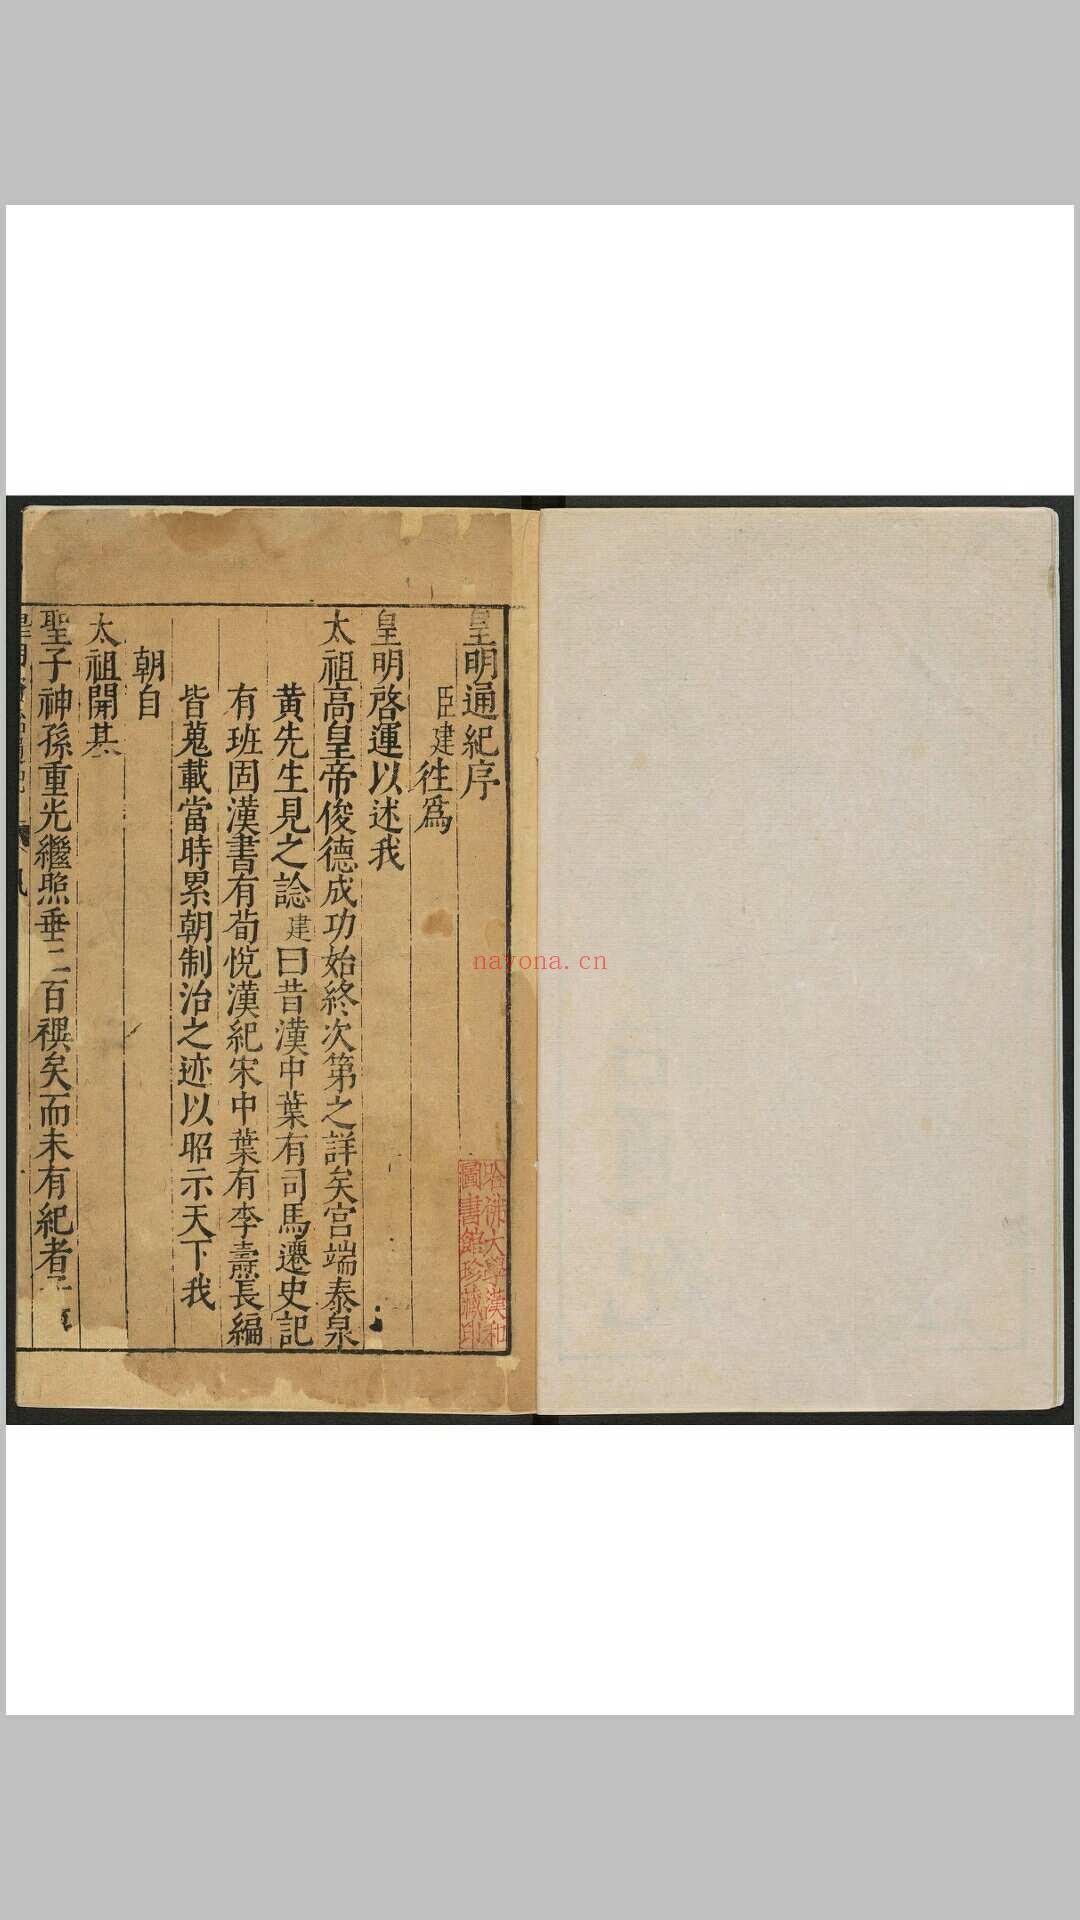 皇明通紀序
臣建徃爲
皇明啓運以述我
太祖高皇帝俊德成功始終次第之詳矣宮端泰泉
黃先生見之諗建曰昔漢中葉有司馬遷史記
有班固漢書有荀悅漢紀宋中葉有李燾長編
皆蒐載當時累朝制治之迹以昭示天下我
朝自
太祖開基
聖子神孫重光繼照垂二百禩矣而未有紀者
哈佛大學漢和
圖書館珍藏印
nayona.cn